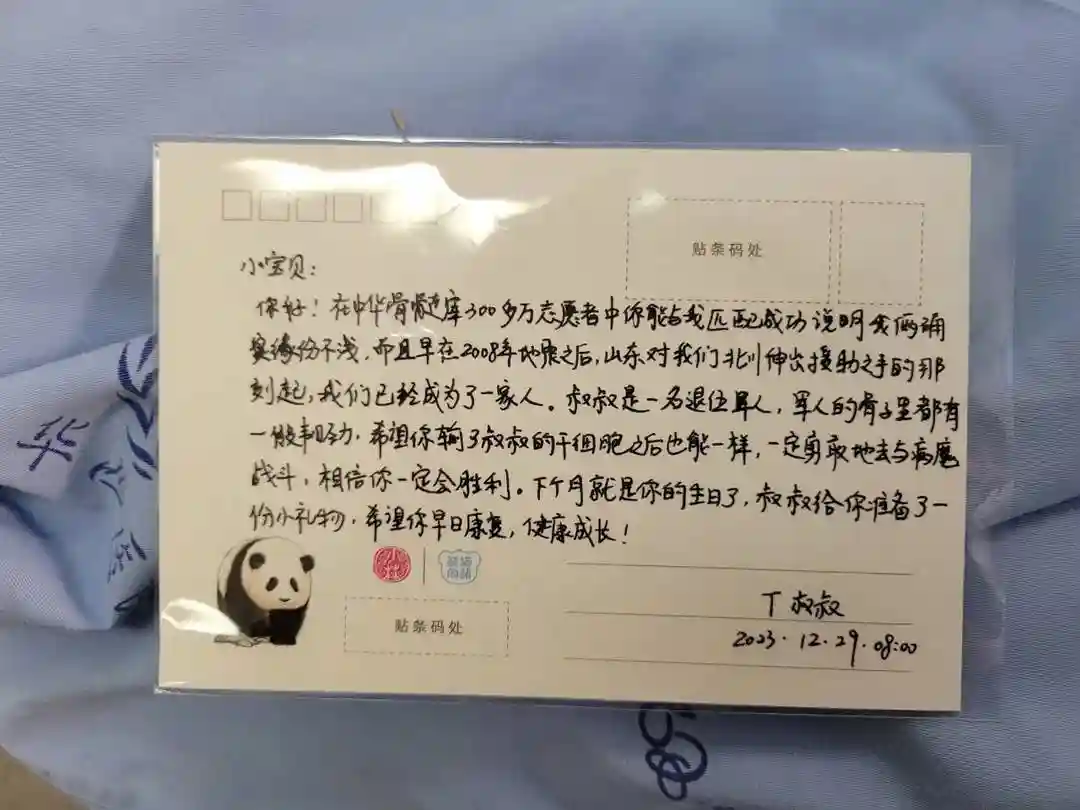 贴条码处
小宝贝：
你好！在中华骨髓库300多万志愿者中你能与我匹配成功说明我俩确
实缘份不浅，而且早在2008年地震之后，山东对我们北川伸出援助之手的那
刻起，我们已经成为了一家人。叔叔是一名退伍军人，军人的骨子里都有
一股韧劲，希望你输了叔叔的干细胞之后也能一样，一定勇敢地去与病魔
战斗，相信你一定会胜利。下个月就是你的生日了，叔叔给你准备了一
份小礼物，希望你早日康复，健康成长！
贴条码处
T叔叔
2023.12.29.08:00
华